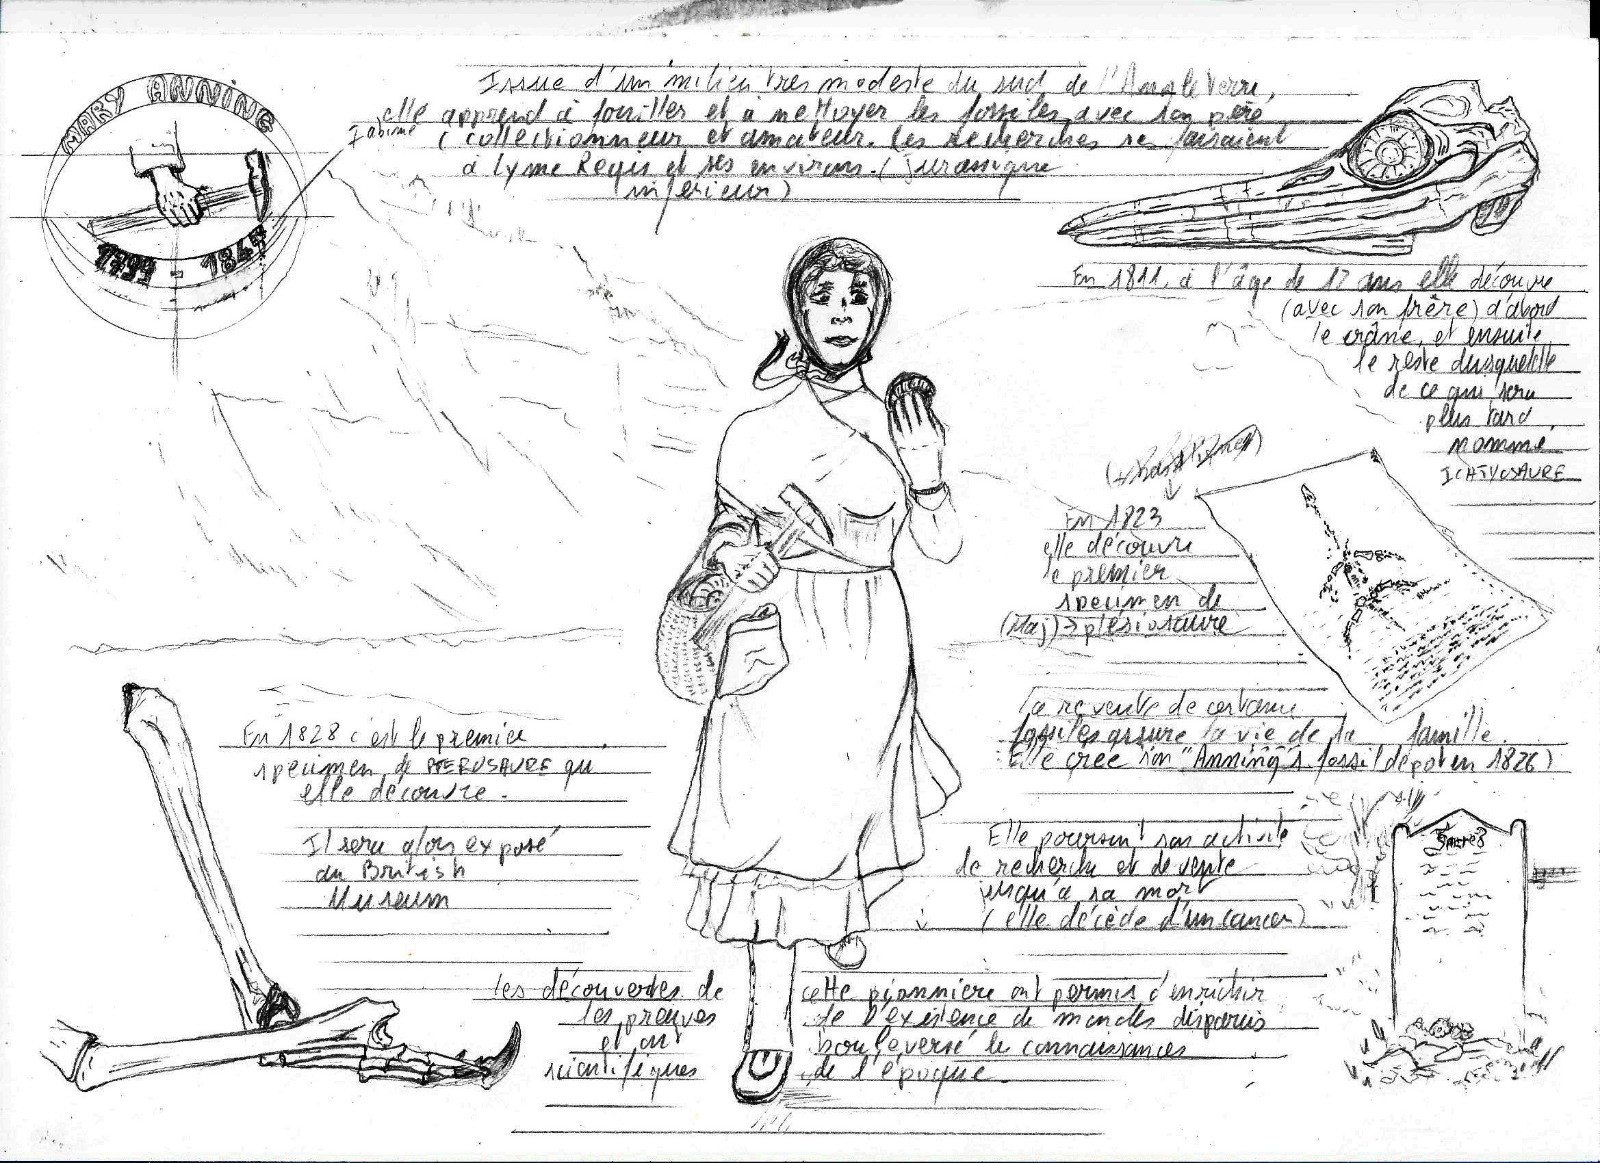 MARY ANNING
1799 - 1847
Issue d'un milieu tres modeste du sud de l'Angleterre,
elle apprend à fouiller et à nettoyer les fossiles avec son père
(collectionneur et amateur. les recherches se faisaient
à Lyme Regis et ses environs. (jurassique
inférieur)
En 1811, à l'âge de 12 ans elle découvre
(avec son frêre) d'abord
le crâne, et ensuite
le reste du squelette
de ce qui sera
plus tard
nommé
ICHTYOSAURE
En 1823
elle découvre
le premier
specimen de
(Maj) → plésiosaure
la revente de certains
fossiles assure la vie de la famille.
Elle crée son "Anning's fossil depot en 1826)
Elle poursuit son activité
de recherche et de vente
jusqu'à sa mort
(elle décède d'un cancer)
En 1828 c'est le premier
specimen de PTEROSAURE qu
elle découvre.
Il sera alors exposé
au British
Museum
les découvertes de cette pionnière ont permis d'enrichir
les preuves de l'existence de mondes disparus
et ont bouleversé les connaissances
scientifiques de l'époque.